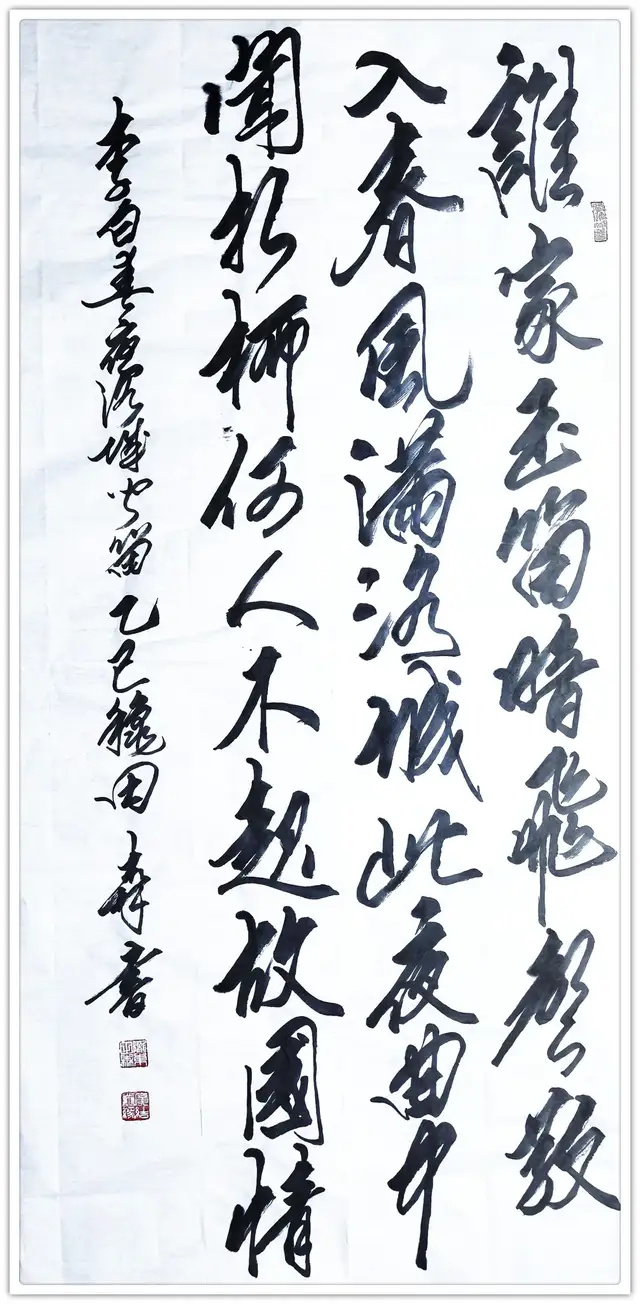 誰家玉笛暗飛聲散
入春風滿洛城此夜曲中
聞折柳何人不起故國情
李白春夜洛城聞笛乙巳穐田
書